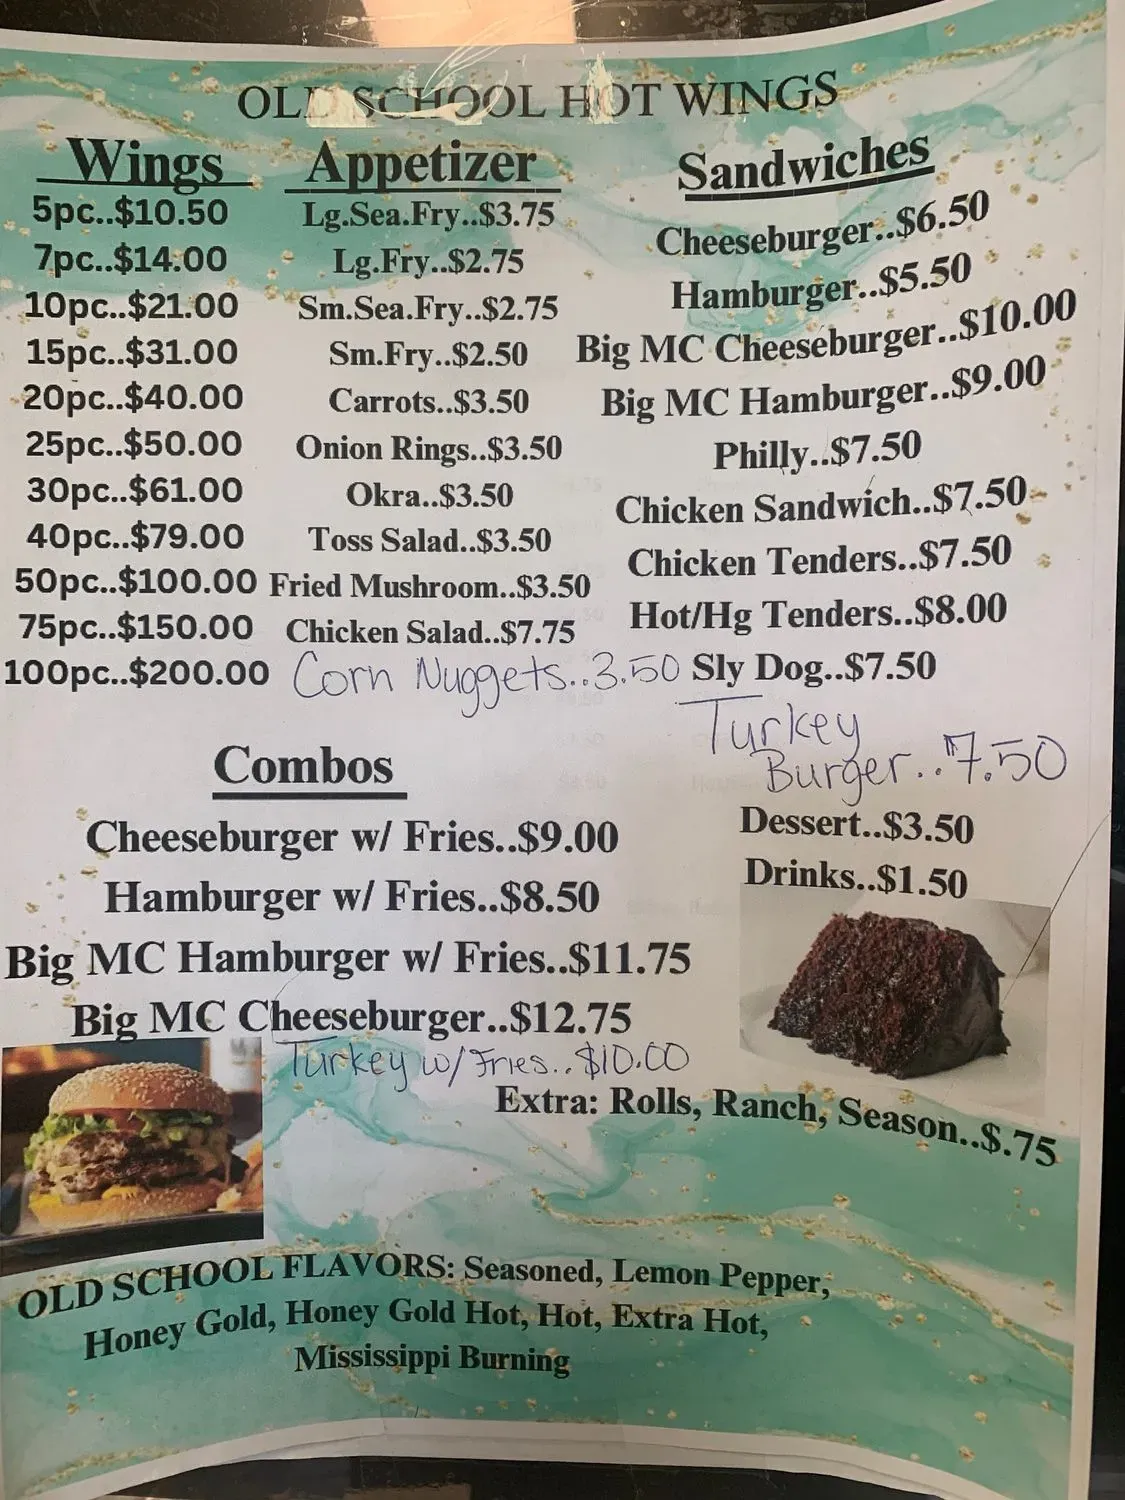 OLD SCHOOL HOT WINGS
Wings
5pc..$10.50
7pc..$14.00
10pc..$21.00
15pc..$31.00
20pc..$40.00
25pc..$50.00
30pc..$61.00
40pc..$79.00
50pc..$100.00
75pc..$150.00
100pc..$200.00
Appetizer
Lg.Sea.Fry..$3.75
Lg.Fry..$2.75
Sm.Sea.Fry..$2.75
Sm.Fry..$2.50
Carrots..$3.50
Onion Rings..$3.50
Okra..$3.50
Toss Salad..$3.50
Fried Mushroom..$3.50
Chicken Salad..$7.75
Corn Nuggets..3.50
Sandwiches
Cheeseburger..$6.50
Hamburger..$5.50
Big MC Cheeseburger..$10.00
Big MC Hamburger..$9.00
Philly..$7.50
Chicken Sandwich..$7.50
Chicken Tenders..$7.50
Hot/Hg Tenders..$8.00
Sly Dog..$7.50
Turkey
Burger..7.50
Dessert..$3.50
Drinks..$1.50
Combos
Cheeseburger w/ Fries..$9.00
Hamburger w/ Fries..$8.50
Big MC Hamburger w/ Fries..$11.75
Big MC Cheeseburger..$12.75
Turkey w/ Fries..$10.00
Extra: Rolls, Ranch, Season..$.75
OLD SCHOOL FLAVORS: Seasoned, Lemon Pepper,
Honey Gold, Honey Gold Hot, Hot, Extra Hot,
Mississippi Burning